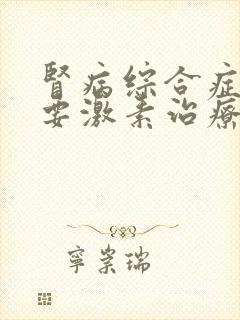 腎病综合症
要激素治療
寧崇瑞